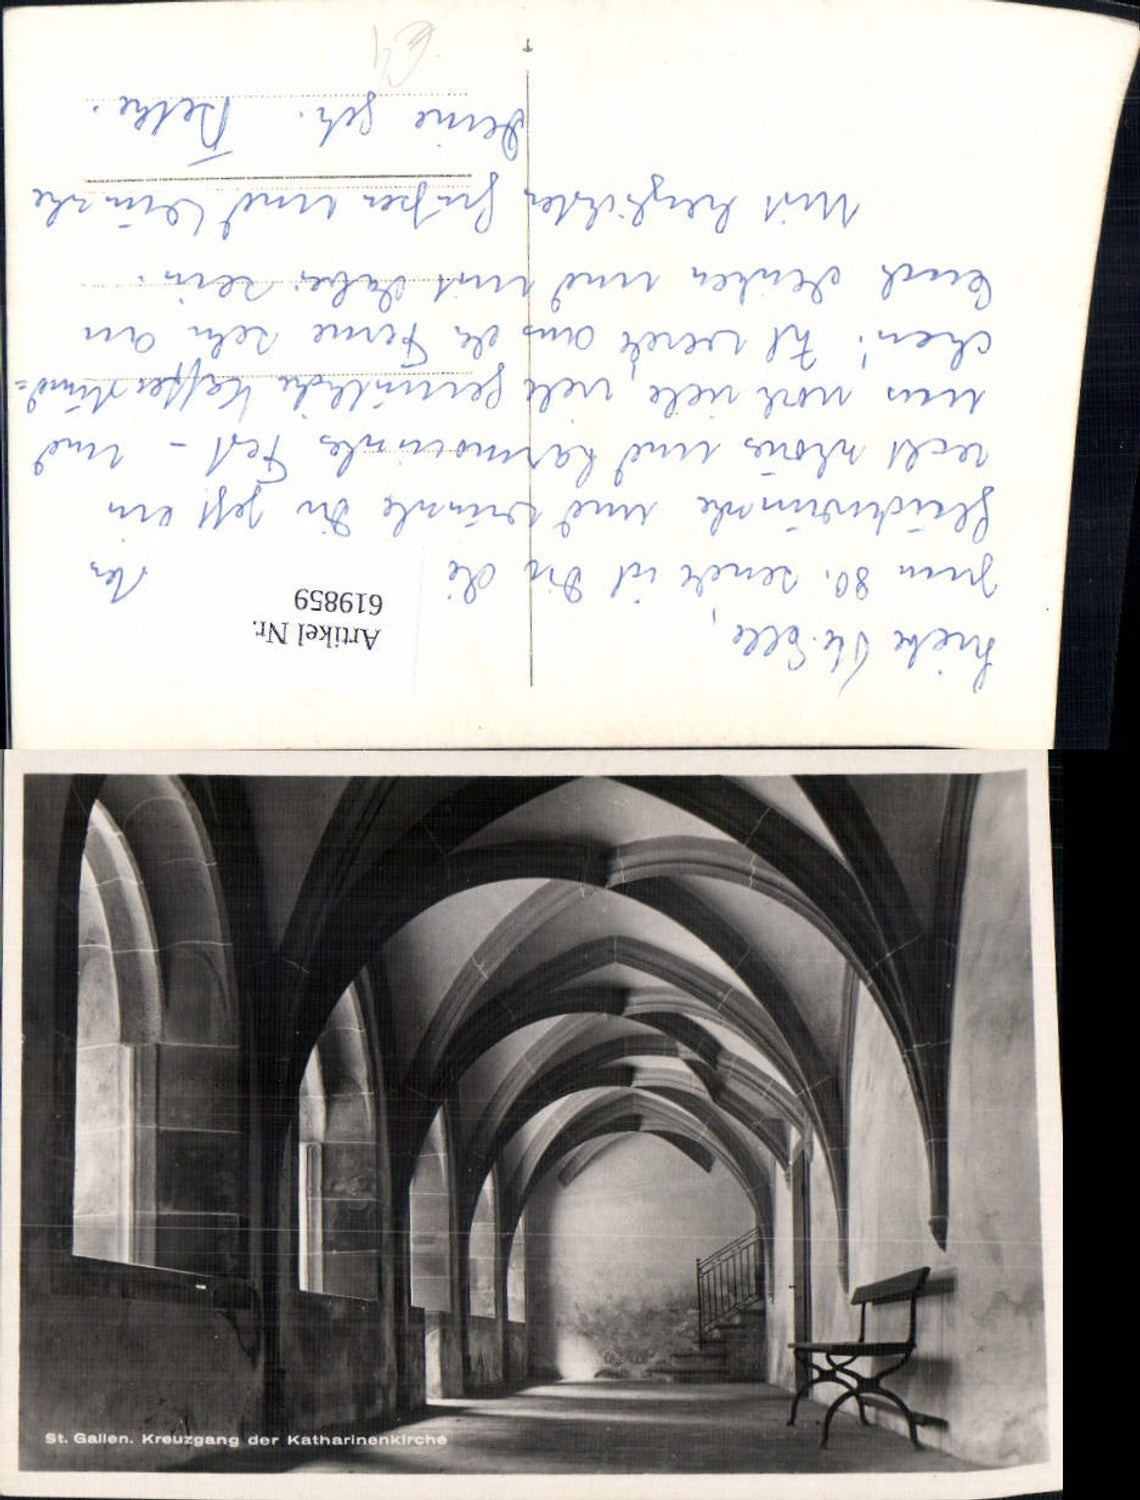 Liebe Elle,
zum 80. sende ich Dir die
Glückwünsche und wünsche Dir jetzt ein
recht schönes und harmonisches Fest - und
uns noch viele, viele gemütliche Kaffeestünd=
chen! Ich werde aus der Ferne sehr an
Euch denken und mit dabei sein.
Mit herzlichsten Grüßen und Wünsche
Deine
Artikel Nr.
619859
St. Gallen. Kreuzgang der Katharinenkirche